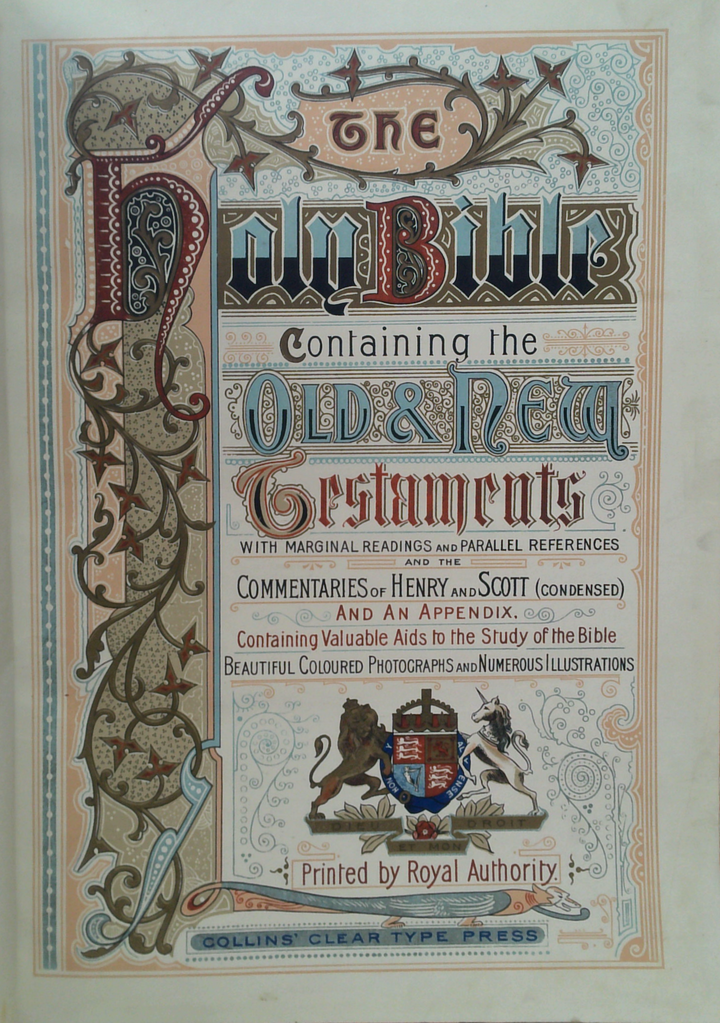 THE
Holy Bible
Containing the
OLD & NEW
Testaments
WITH MARGINAL READINGS AND PARALLEL REFERENCES
AND THE
COMMENTARIES OF HENRY AND SCOTT (CONDENSED)
AND AN APPENDIX.
Containing Valuable Aids to the Study of the Bible
BEAUTIFUL COLOURED PHOTOGRAPHS AND NUMEROUS ILLUSTRATIONS
DIEU DROIT
ET MON
Printed by Royal Authority.
COLLINS' CLEAR TYPE PRESS